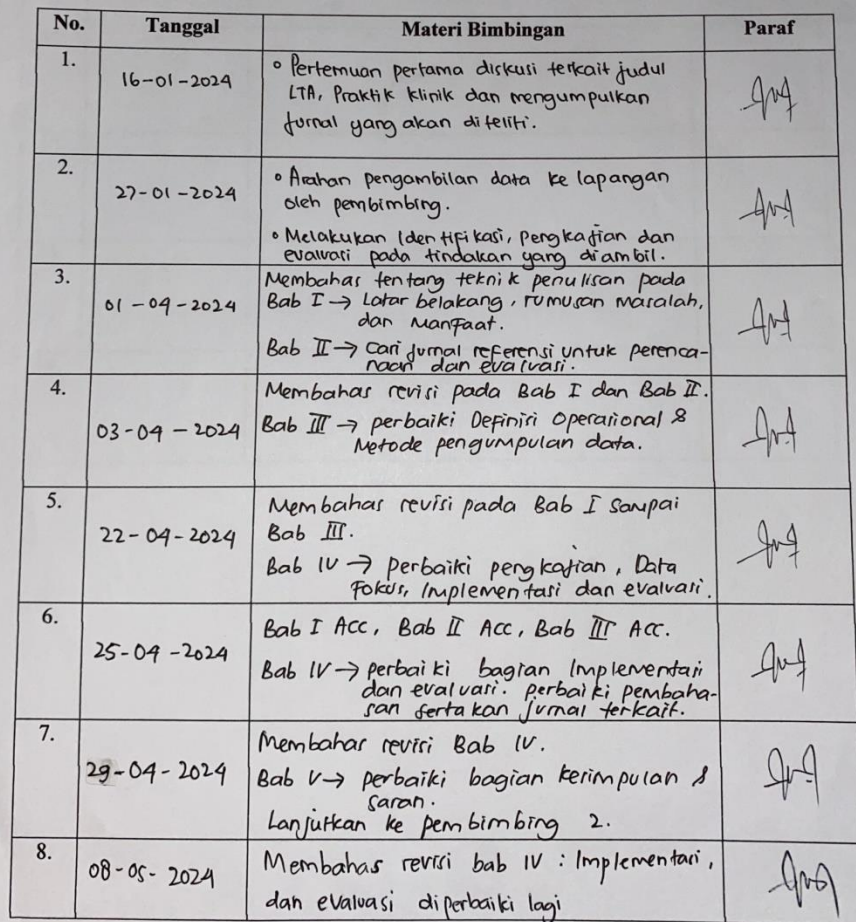 No. Tanggal Materi Bimbingan Paraf
1. 16-01-2024 ° Pertemuan pertama diskusi terkait judul
LTA, Praktik klinik dan mengumpulkan
Jurnal yang akan diteliti.
2. 27-01-2024 ° Arahan pengambilan data ke lapangan
oleh pembimbing.
° Melakukan Identifikasi, Pengkajian dan
evaluasi pada tindakan yang diambil.
3. 01-04-2024 Membahas tentang teknik penulisan pada
Bab I → Latar belakang, rumusan masalah,
dan Manfaat.
Bab II → Cari jurnal referensi untuk perenca-
naan dan evaluasi.
4. 03-04-2024 Membahas revisi pada Bab I dan Bab II.
Bab III → perbaiki Definisi Operasional &
Metode pengumpulan data.
5. 22-04-2024 Membahas revisi pada Bab I sampai
Bab III.
Bab IV → perbaiki pengkajian, Data
Fokus, Implementasi dan evaluasi.
6. 25-04-2024 Bab I ACC, Bab II ACC, Bab III ACC.
Bab IV → perbaiki bagian Implementasi
dan evaluasi. perbaiki pembaha-
san sertakan jurnal terkait.
7. 29-04-2024 Membahas revisi Bab IV.
Bab V → perbaiki bagian kesimpulan &
saran.
Lanjutkan ke pembimbing 2.
8. 08-05-2024 Membahas revisi bab IV : Implementasi,
dan evaluasi diperbaiki lagi